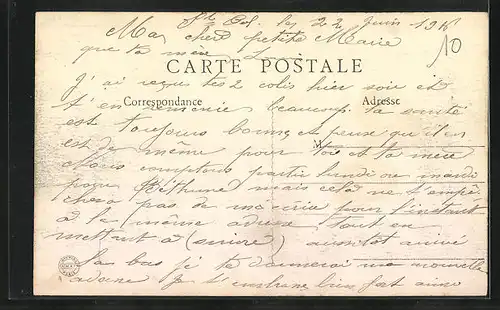 le 22 Juin 191
10
Ma chere petite Marie
que ta mère
CARTE POSTALE
J'ai reçu tes 2 colis hier soir et
Correspondance
Adresse
t'en remercie beaucoup ta santé
est toujours bonne et pense qu'il en
M
est de même pour toi et ta mère
Nous comptons partir lundi ou mardi
pour Béthune mais cela ne t'empê
chera pas de m'écrire pour l'instant
à la même adresse tout en
mettant à (suivre) aussitôt arrivé
la bas je te donnerai ma nouvelle
adresse Je t'embrasse bien fort ainsi